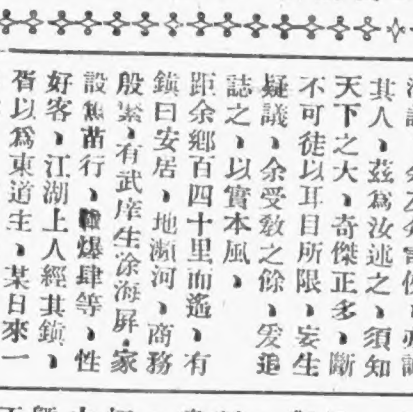 其人、茲爲汝述之、須知
天下之大、奇傑正多、斷
不可徒以耳目所限、妄生
疑議、余受敎之餘、爰追
誌之、以實本風、
距余鄉百四十里而遙、有
鎭曰安居、地瀕河、商務
殷繁、有武庠生涂海屏、家
設魚苗行、爆肆等、性
好客、江湖上人經其鎭、
胥以爲東道主、某日來一